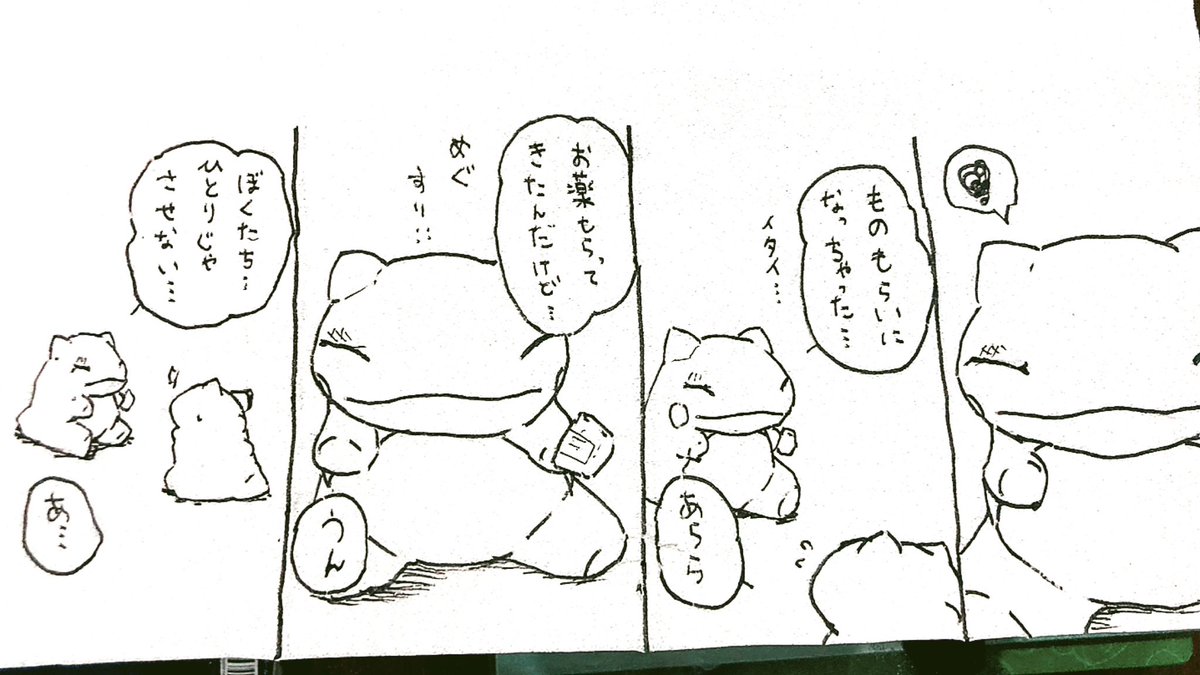 ものもらいに
なっちゃった…
イタイ…
あらら
お薬もらって
きたんだけど…
めぐ
すり!!
うん
ぼくたち…
ひとりじゃ
させない…
あ…